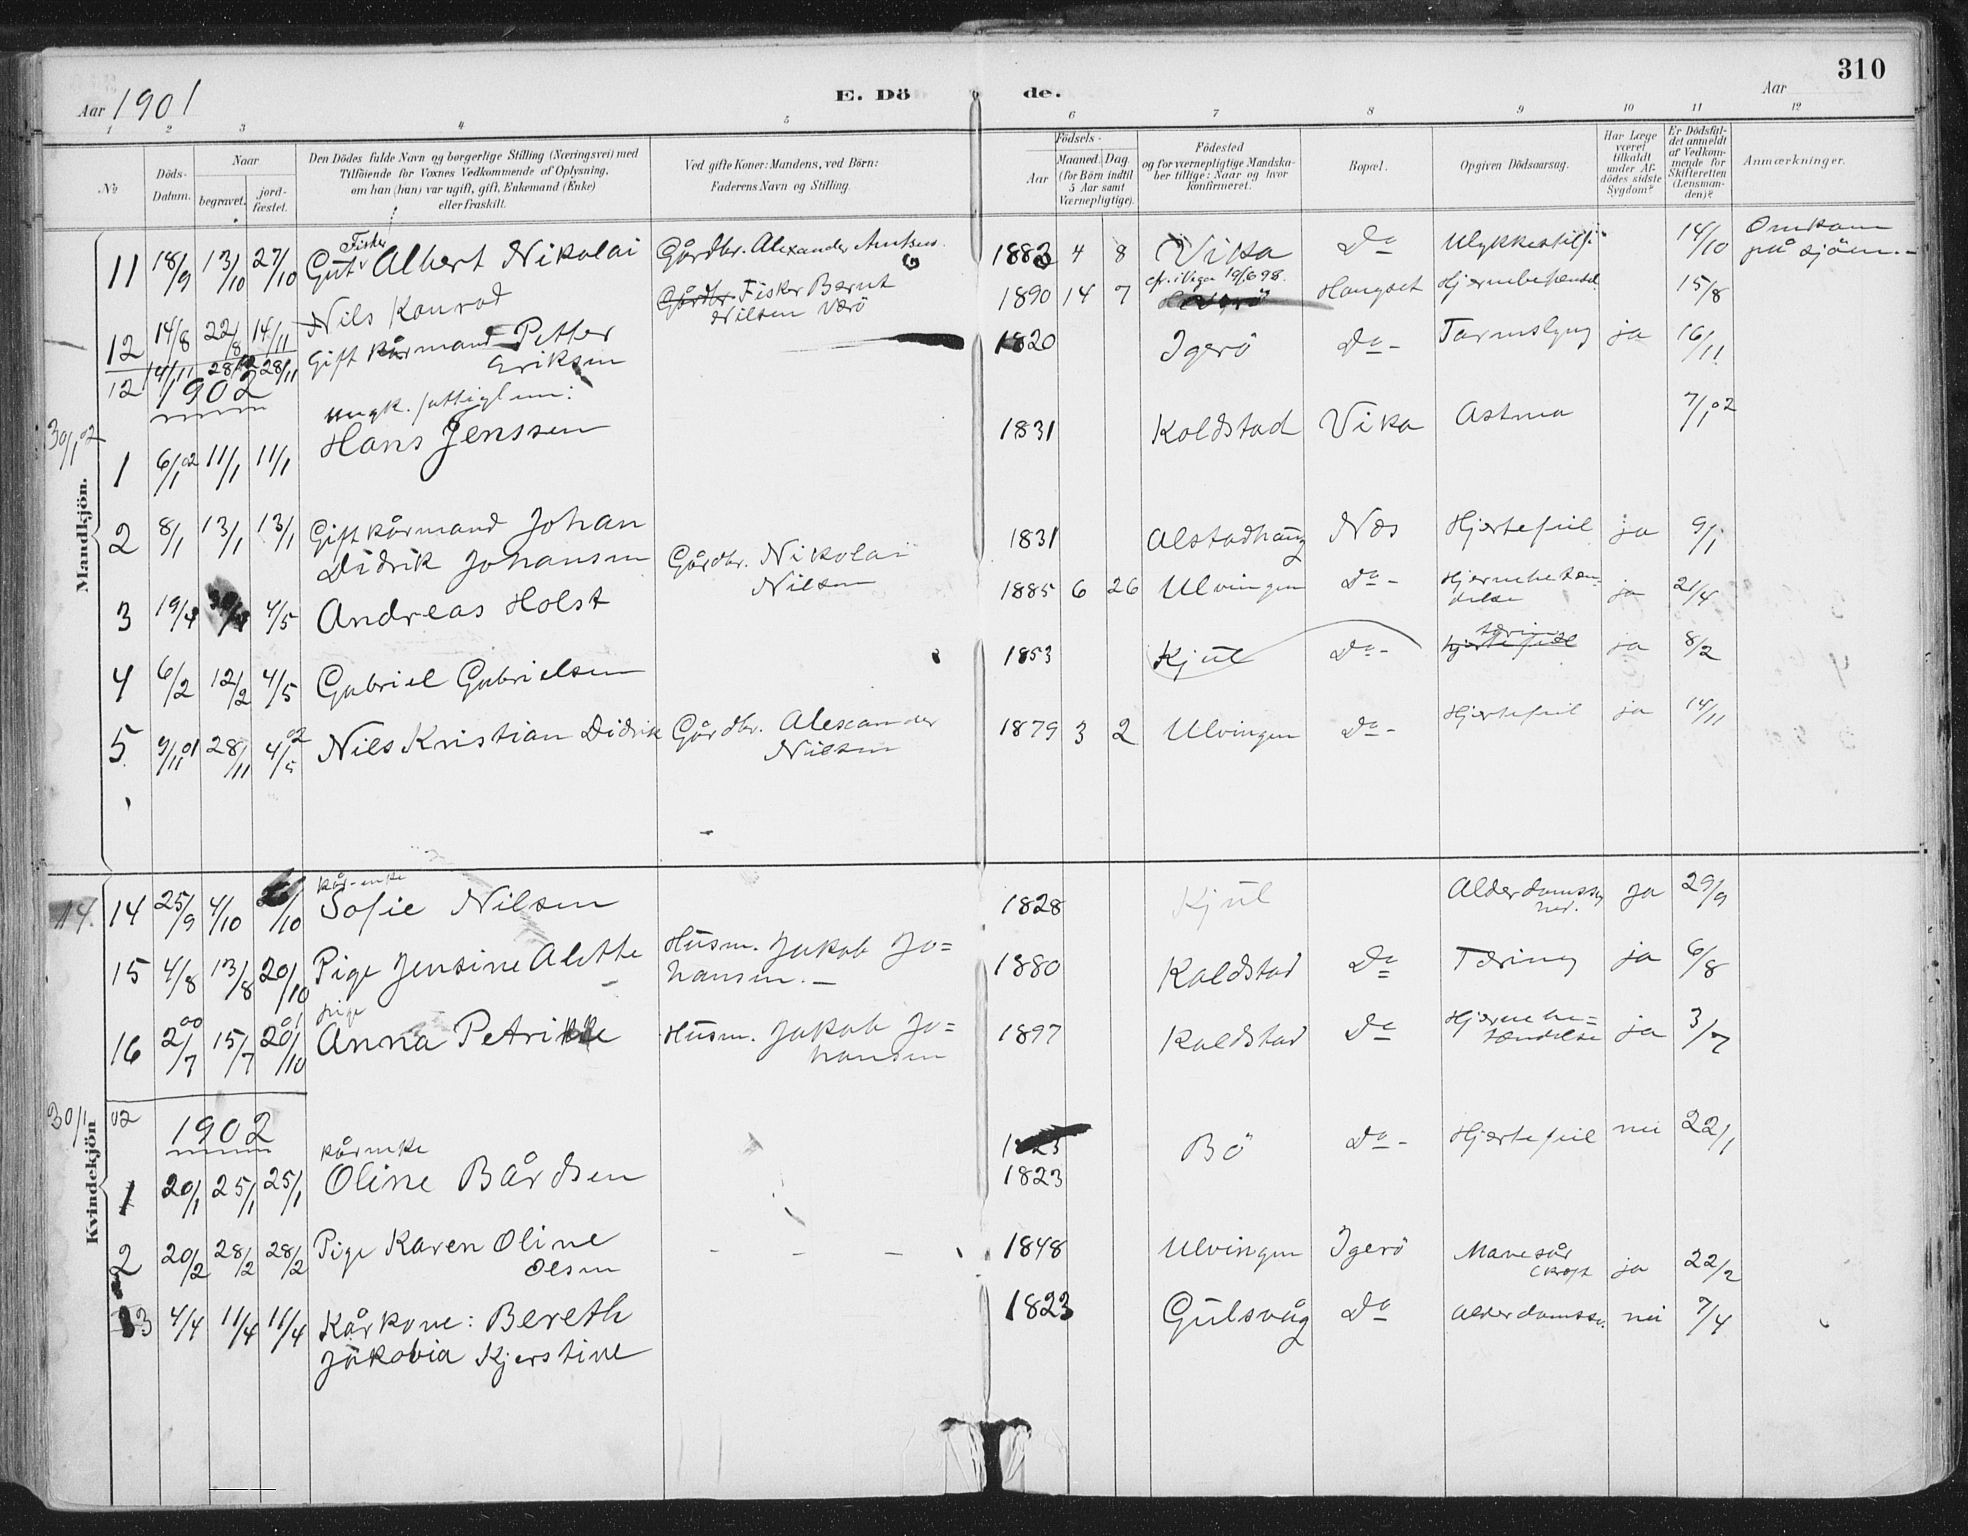 Aar 1901
E. Döde.
Aar
310
1 2 3 4 5 6 7 8 9 10 11 12
No
Döds-Datum.
Naar
begravet.
jord-fæstet.
Den Dödes fulde Navn og borgerlige Stilling (Næringsvei) med
Tilföiende for Voxnes Vedkommende af Oplysning,
om han (hun) var ugift, gift, Enkemand (Enke)
eller fraskilt.
Ved gifte Koner: Mandens, ved Börn:
Faderens Navn og Stilling.
Födsels-
Aar
Maaned. Dag.
(for Börn indtil
5 Aar samt
Værnepligtige).
Födested
og for værnepligtige Mandska-
ber tillige: Naar og hvor
konfirmeret.
Bopæl.
Opgiven Dödsaarsag.
Har Læge
været
tilkaldt
under Af-
dödes sidste
Sygdom?
Er Dödsfal-
det anmeldt
af Vedkom-
mende for
Skifteretten
(Lensman-
den)?
Anmærkninger.
Mandkjön.
11 18/9 13/10 27/10 Fisker Gut Albert Nikolai Gårdbr. Alexander 1883 4 8 Vika Do Ulykkestilf. 14/10 Omkom på sjöen.-
12 14/8 22/8 14/11 Nils Konrad Gårdbr. Fisker Bernt Nilsen Værö 1890 14 7 19/6 98. Haugset 15/8
12 14/11 28/11 28/11 Gift kårmand Petter Eriksen 1820 Igerö Do- Tarmslyng ja 16/11
1902
30/1 02
1 6/1 02 11/1 11/1 Ungk. Hans Jenssen 1831 Koldstad Vika Astma 7/1 02
2 8/1 13/1 13/1 Gift kårmand Johan Didrik Johansen 1831 Alstadhaug Næs Hjertefeil ja 9/1
3 19/4 30/4 4/5 Andreas Holst Gårdbr. Nikolai Nilsen 1885 6 26 Ulvingen Do- Hjernebetændelse ja 21/4
4 6/2 12/2 4/5 Gabriel Gabrielsen 1853 Kjul Do- tæring hjertefeil ja 8/2
5 9/11 01 28/11 4/5 02 Nils Kristian Didrik Gårdbr. Alexander Nilsen 1879 3 2 Ulvingen Do- Hjertefeil ja 14/11
Kvindekjön
14.
14 25/9 4/10 /10 kår-enke Sofie Nilsen 1828 Kjul Alderdomssv. ja 29/9
15 4/8 13/8 20/10 Pige Jensine Alette Husm. Jakob Jo=hansen.- 1880 Koldstad Do Tæring ja 6/8
16 2/7 00 15/7 20/10 01 pige Anna Petrikke Husm. Jakob Jo=hansen 1897 Koldstad Do Hjernebe=tændelse ja 3/7
30/1 02
1902
1 20/1 25/1 25/1 kårenke Oline Bårdsen 1823 1823 Bö Do- Hjertefeil nei 22/1
2 20/2 28/2 28/2 Pige Karen Oline Olsen - - - 1848 Ulvingen Igerö Mavesår ja 22/2
3 4/4 11/4 11/4 Kårkone: Bereth Jakobia Kjerstine 1823 Gulsvåg Do Alderdomssv. nei 7/4